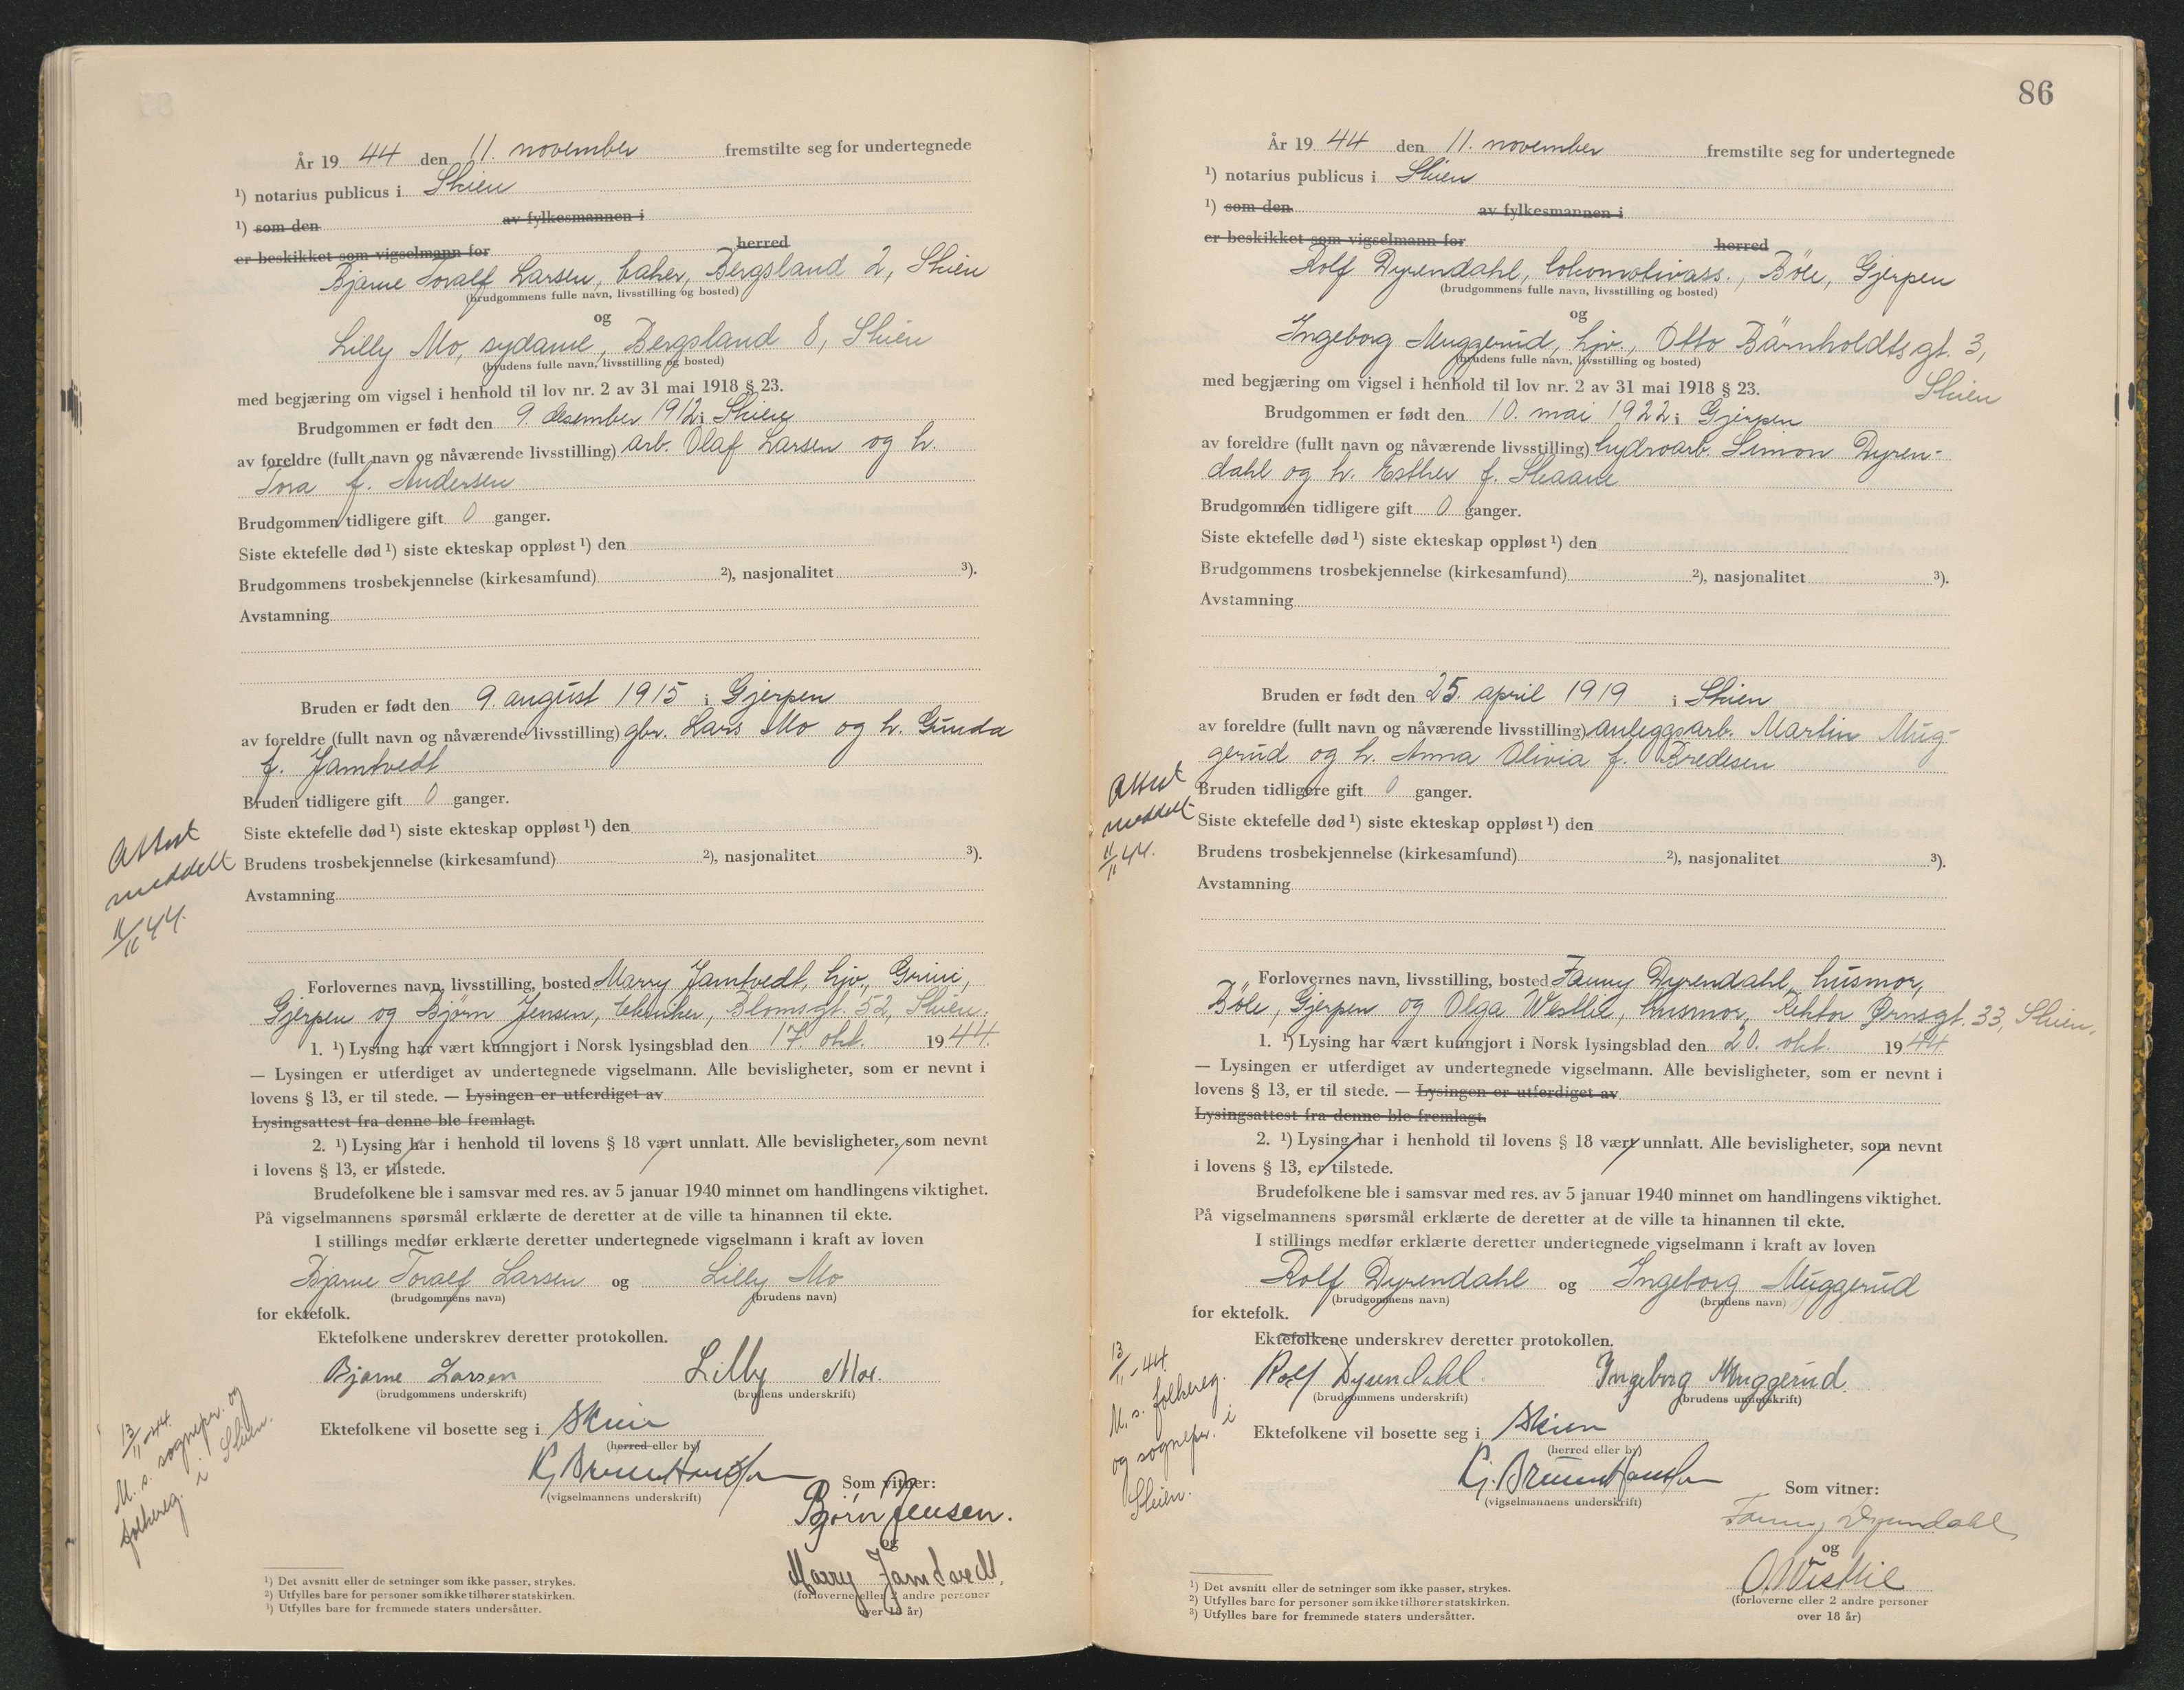 År 19 44 den 11. november fremstilte seg for undertegnede
¹) notarius publicus i Skien
¹) som den av fylkesmannen i
er beskikket som vigselmann for herred
Bjarne Toralf Larsen, baker, Bergsland 2, Skien
(brudgommens fulle navn, livsstilling og bosted)
og
Lilly Mo, sydame, Bergsland 8, Skien
(brudens fulle navn, livsstilling og bosted)
med begjæring om vigsel i henhold til lov nr. 2 av 31 mai 1918 § 23.
Brudgommen er født den 9. desember 1912 i Skien
av foreldre (fullt navn og nåværende livsstilling) arb. Olaf Larsen og h.
Tora f. Andersen
Brudgommen tidligere gift 0 ganger.
Siste ektefelle død ¹) siste ekteskap oppløst ¹) den
Brudgommens trosbekjennelse (kirkesamfund) ²), nasjonalitet ³).
Avstamning
Bruden er født den 9. august 1915 i Gjerpen
av foreldre (fullt navn og nåværende livsstilling) gbr. Lars Mo og h. Gunda
f. Jamtvedt
Bruden tidligere gift 0 ganger.
Siste ektefelle død ¹) siste ekteskap oppløst ¹) den
Brudens trosbekjennelse (kirkesamfund) ²), nasjonalitet ³).
Avstamning
Attest
meddelt
11/11 44.
Forlovernes navn, livsstilling, bosted Marry Jamtvedt, hjv., Grini,
Gjerpen og Bjørn Jensen, tekniker, Blomsgt. 52, Skien.
1. ¹) Lysing har vært kunngjort i Norsk lysingsblad den 17. okt. 19 44.
— Lysingen er utferdiget av undertegnede vigselmann. Alle bevisligheter, som er nevnt i
lovens § 13, er til stede. — Lysingen er utferdiget av
Lysingsattest fra denne ble fremlagt.
2. ¹) Lysing har i henhold til lovens § 18 vært unnlatt. Alle bevisligheter, som nevnt
i lovens § 13, er tilstede.
Brudefolkene ble i samsvar med res. av 5 januar 1940 minnet om handlingens viktighet.
På vigselmannens spørsmål erklærte de deretter at de ville ta hinannen til ekte.
I stillings medfør erklærte deretter undertegnede vigselmann i kraft av loven
Bjarne Toralf Larsen og Lilly Mo
(brudgommens navn) (brudens navn)
for ektefolk.
Ektefolkene underskrev deretter protokollen.
Bjarne Larsen Lilly Mo.
(brudgommens underskrift) (brudens underskrift)
Ektefolkene vil bosette seg i Skien
(herred eller by)
(vigselmannens underskrift)
Som vitner:
Bjørn Jensen.
og
Marry Jamtvedt.
(forloverne eller 2 andre personer
over 18 år)
13/11 -44.
M. s. sognepr. og
folkereg. i Skien.
¹) Det avsnitt eller de setninger som ikke passer, strykes.
²) Utfylles bare for personer som ikke tilhører statskirken.
³) Utfylles bare for fremmede staters undersåtter.
86
År 19 44 den 11. november fremstilte seg for undertegnede
¹) notarius publicus i Skien
¹) som den av fylkesmannen i
er beskikket som vigselmann for herred
Rolf Dyrendahl, lokomotivass., Böle, Gjerpen
(brudgommens fulle navn, livsstilling og bosted)
og
Ingeborg Muggerud, hjv., Otto Bärnholdtsgt. 3,
(brudens fulle navn, livsstilling og bosted)
med begjæring om vigsel i henhold til lov nr. 2 av 31 mai 1918 § 23. Skien
Brudgommen er født den 10. mai 1922 i Gjerpen
av foreldre (fullt navn og nåværende livsstilling) hydroarb. Simon Dyren-
dahl og h. Esther f. Skaare
Brudgommen tidligere gift 0 ganger.
Siste ektefelle død ¹) siste ekteskap oppløst ¹) den
Brudgommens trosbekjennelse (kirkesamfund) ²), nasjonalitet ³).
Avstamning
Bruden er født den 25. april 1919 i Skien
av foreldre (fullt navn og nåværende livsstilling) anleggsarb. Martin Mug-
gerud og h. Anna Olivia f. Bredesen
Attest
meddelt
11/11 44.
Bruden tidligere gift 0 ganger.
Siste ektefelle død ¹) siste ekteskap oppløst ¹) den
Brudens trosbekjennelse (kirkesamfund) ²), nasjonalitet ³).
Avstamning
Forlovernes navn, livsstilling, bosted Fanny Dyrendahl, husmor,
Böle, Gjerpen og Olga Westlie, husmor, Rektor Ørnsgt. 33, Skien.
1. ¹) Lysing har vært kunngjort i Norsk lysingsblad den 20. okt. 19 44.
— Lysingen er utferdiget av undertegnede vigselmann. Alle bevisligheter, som er nevnt i
lovens § 13, er til stede. — Lysingen er utferdiget av
Lysingsattest fra denne ble fremlagt.
2. ¹) Lysing har i henhold til lovens § 18 vært unnlatt. Alle bevisligheter, som nevnt
i lovens § 13, er tilstede.
Brudefolkene ble i samsvar med res. av 5 januar 1940 minnet om handlingens viktighet.
På vigselmannens spørsmål erklærte de deretter at de ville ta hinannen til ekte.
I stillings medfør erklærte deretter undertegnede vigselmann i kraft av loven
Rolf Dyrendahl og Ingeborg Muggerud
(brudgommens navn) (brudens navn)
for ektefolk.
Ektefolkene underskrev deretter protokollen.
Rolf Dyrendahl. Ingeborg Muggerud.
(brudgommens underskrift) (brudens underskrift)
Ektefolkene vil bosette seg i Skien
(herred eller by)
(vigselmannens underskrift)
Som vitner:
Fanny Dyrendahl
og
O. Westlie
(forloverne eller 2 andre personer
over 18 år)
13/11 -44.
M. s. folkereg.
og sognepr. i
Skien.
¹) Det avsnitt eller de setninger som ikke passer, strykes.
²) Utfylles bare for personer som ikke tilhører statskirken.
³) Utfylles bare for fremmede staters undersåtter.